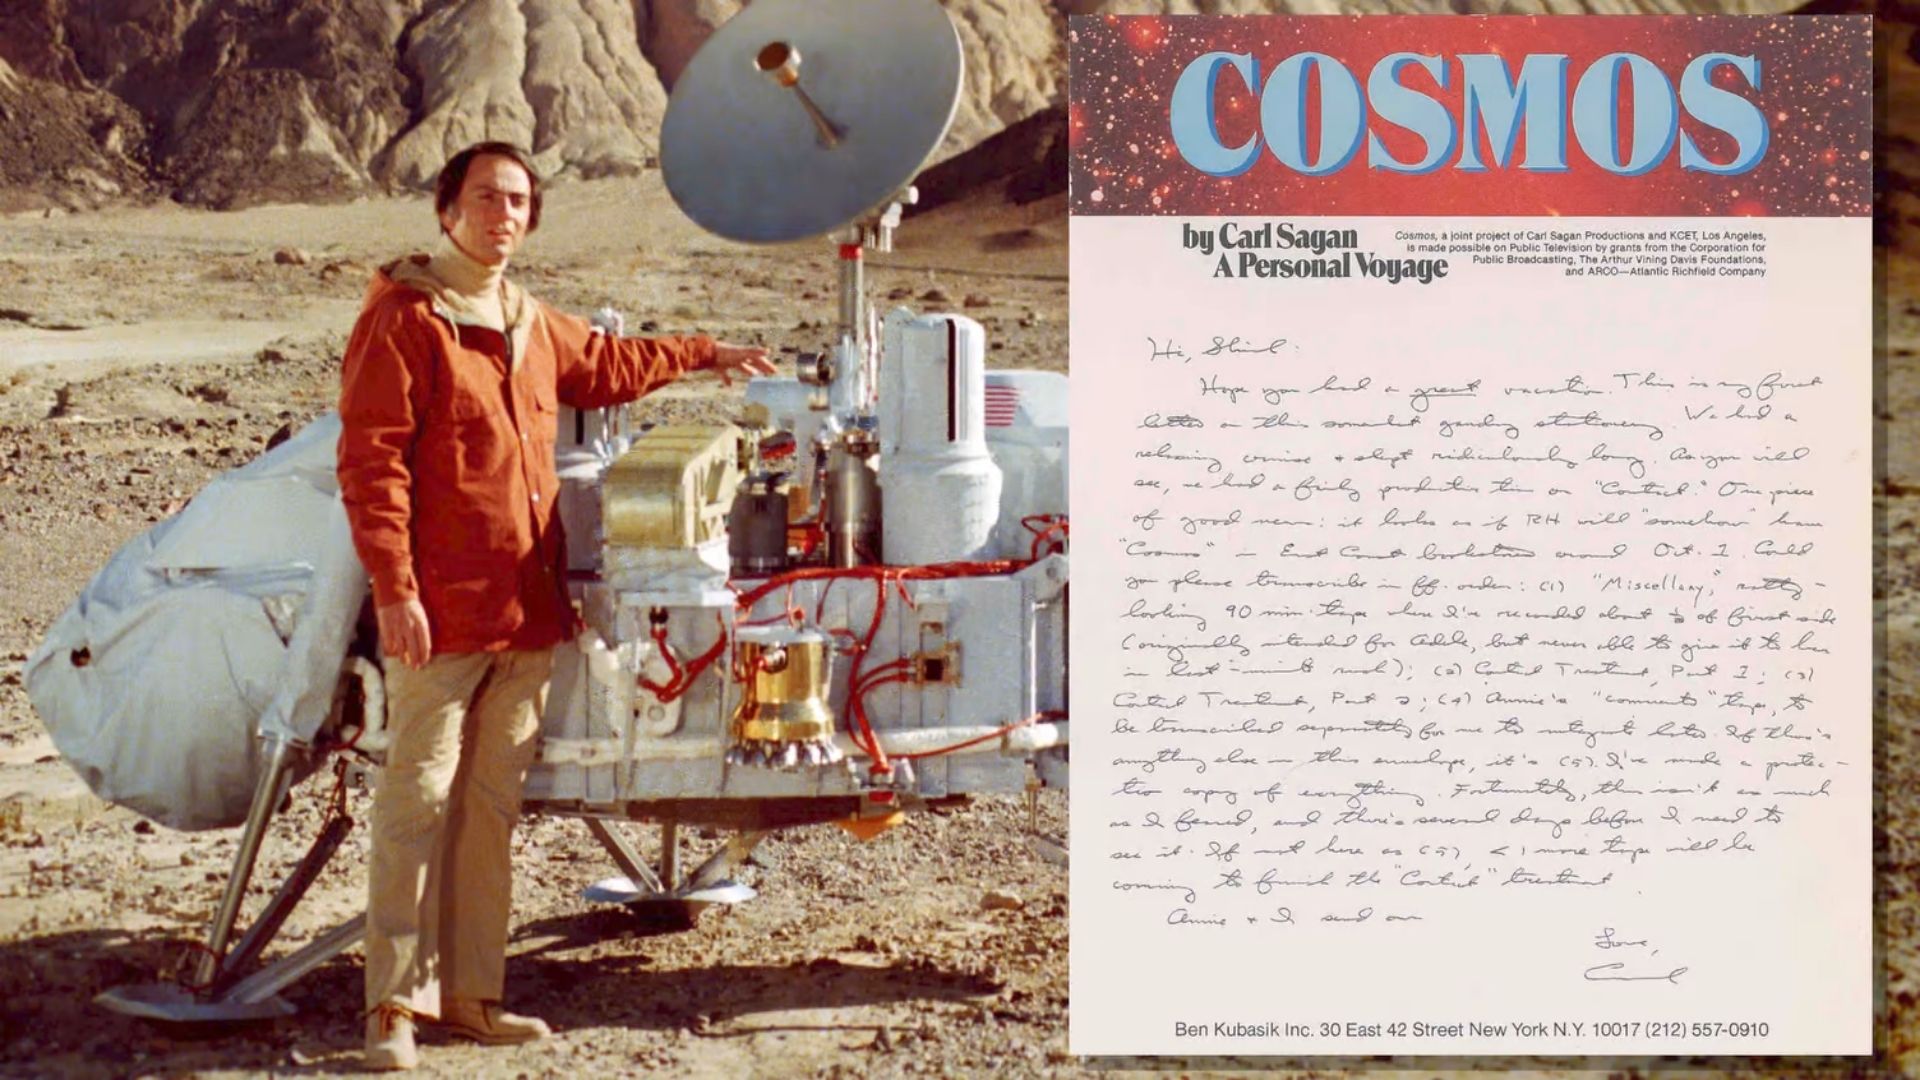 COSMOS
by Carl Sagan
A Personal Voyage
Cosmos, a joint project of Carl Sagan Productions and KCET, Los Angeles,
is made possible on Public Television by grants from the Corporation for
Public Broadcasting, The Arthur Vining Davis Foundations,
and ARCO—Atlantic Richfield Company
Hi, Shirl.
Hope you had a great vacation. This is my first
letter on this somewhat gaudy stationery. We had a
relaxing cruise + slept ridiculously long. As you will
see, we had a fairly productive time on "Contact." One piece
of good news: it looks as if RH will "somehow" have
"Cosmos" in East Coast bookstores around Oct. 1. Could
you please transcribe in ff. order: (1) "Miscellany," ratty-
looking 90 min. tape where I've recorded about of first side
(originally intended for Adele, but never able to give it to her
in last-minute rush); (2) Contact Treatment, Part 1; (3)
Contact Treatment, Part 2; (4) Annie's "comments" tape, to
be transcribed separately for me to integrate later. If there's
anything else in this envelope, it's (5). I've made a protec-
tive copy of everything. Fortunately, this isn't as much
as I feared, and there's several days before I need to
see it. If not here as (5), < 1 more tape will be
coming to finish the "Contact" treatment.
Annie + I send our
Love,
Carl
Ben Kubasik Inc. 30 East 42 Street New York N.Y. 10017 (212) 557-0910